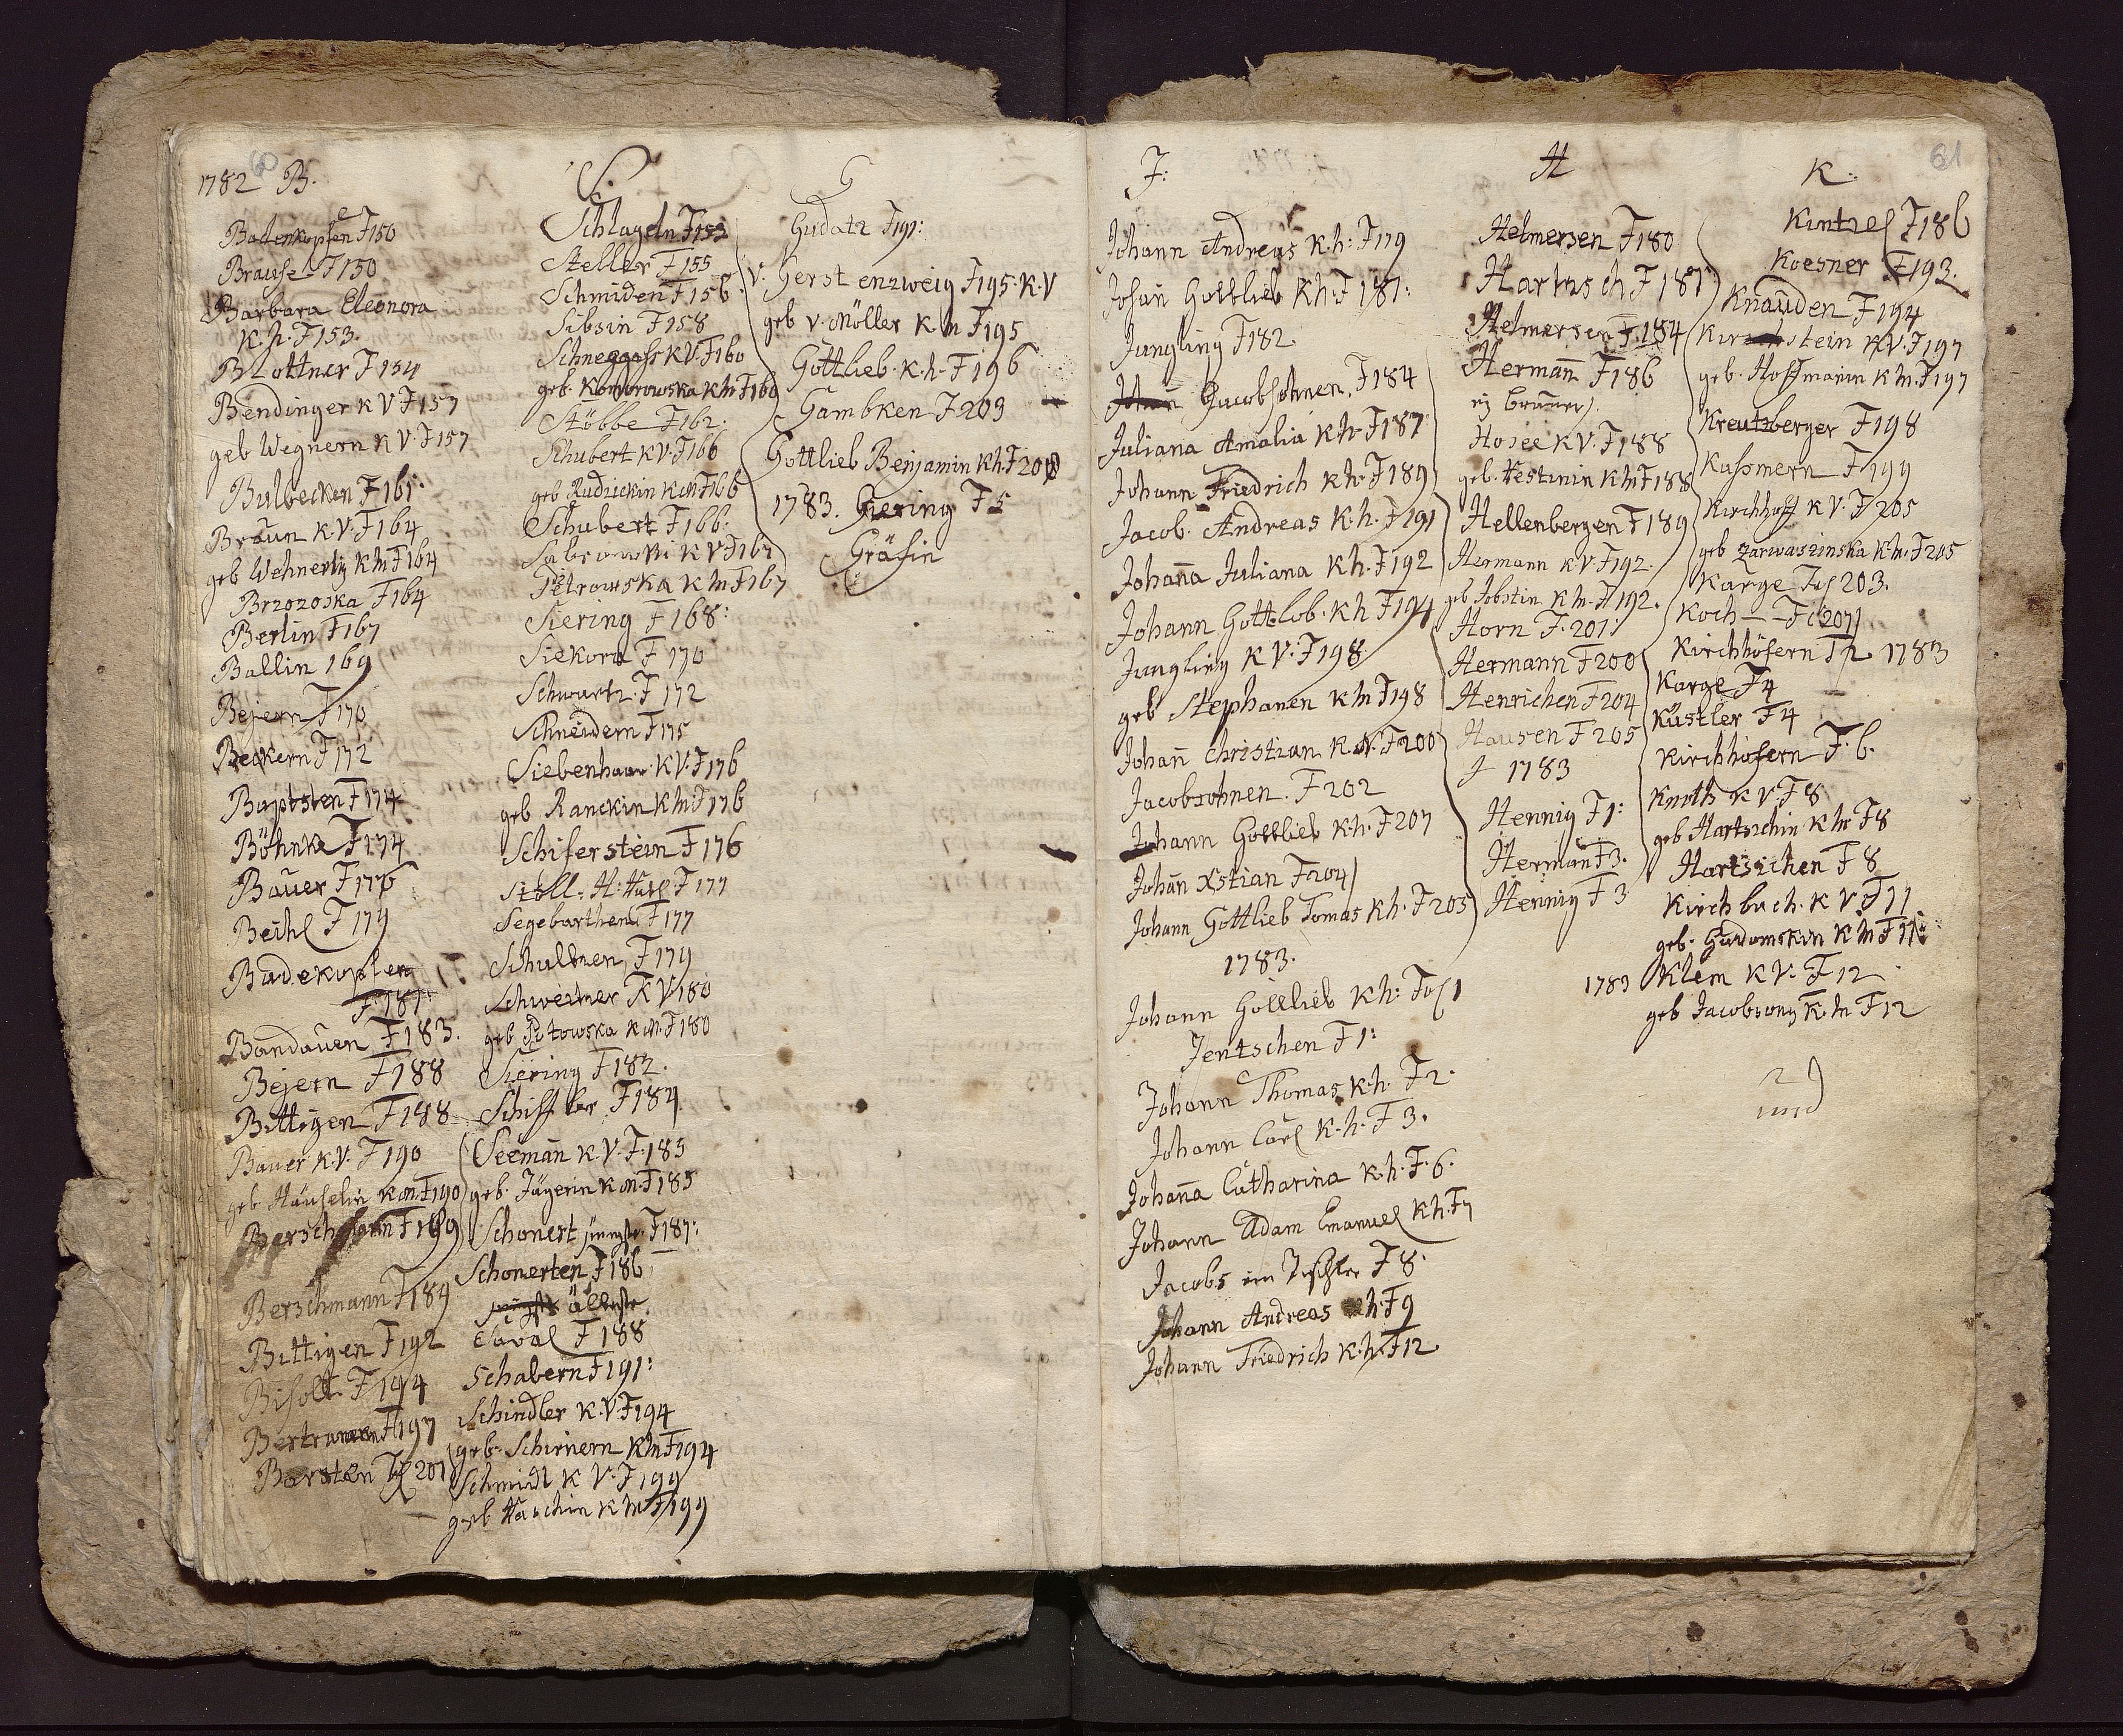 60
1782 B.
Badenkopfen F150
Brause F150
Barbara Eleonora
K. h. F153.
Blottner F154
Bendinger K V F157
geb Wegnern K V F157
Bulbecken F161:
Braun K. V. F164
geb Wehnertin K M F164
Brzozoska F164
Berlin F167
Ballin 169
Bejern F170
Beckern F172
Baptsten F174
Böhnke F174
Bauer F176
Beihl F179
Badekopfen
F181:
Bandauen F183.
Bejern F188
Bittigen F188
Bauer K. V. F190
geb. Häuselin K m. F190
Berschmann F189
Berschmann F189
Bittigen F192
F194
F197
Barsten F 201
S.
Schlageln F153
Steller F155
Schmiden F156
Sibsin F158
Schneggass K V. F160
geb. Komorowska K M F160
Stöbbe F162:
Schubert K V. F166
geb Rudzickin K m F166
Schubert F166.
K V F167
Petrowska K M F167
Siering F168:
Siekora F170
Schwartz. F172
Schneidern F175
Siebenhaar. K V. F176
geb Ranckin K M. F176
Schiferstein F176
Stoll. H. F177
Segebarthen F177
Schultzen F179
Schweitzer K V 180
geb K m. F180
Siering F182.
Schiffler F184
Seeman̄ K. V. F. 185
geb. Jägerin K m. F185
Schonert jüngste. F187:
Schonerten F186
älteste.
F188
Schabern F191:
Schindler K. V F194
geb. Schirnern K M F194
Schmidt K V. F199
geb Haschin K M F199
G
Gudatz F191:
V. Gerstenzweig F195. K. V
geb v. Möller K M F195
Gottlieb. K. h. F196
Gambken F203
Gottlieb Benjamin K h. F208
1783. Giering F5
Gräfin
61
J:
Johann Andreas K. h: F179
Johan̄ Gottlieb K h. F181:
Jungling F182.
Jacobsohnen. F184
Juliana Amalia K h. F187
Johann Friedrich K h. F189
Jacob. Andreas K. h. F191
Johan̄a Juliana K h. F192
Johann Gottlob. K h F194
Jungling K V. F198.
geb Stephanen K M F198
Johan̄ Christian K. F200
Jacobsohnen. F202
Johann Gottlieb K. h. F207
Johan̄ Xstian F204
Johann Gottlieb Tomas K h. F205
1783.
Johann Gottlieb K h: Fol 1
Jentschen F1:
Johann Thomas K. h. F2.
Johann Carl K. h. F3.
Johan̄a Catharina K. h. F. 6.
Johann Adam Emanuel K h. F7
Jacobs ein Tischler F8.
Johann Andreas h. F9
Johann Friedrich K. h. F12
H
Helmersen F180
Hartusch F181
Helmersen F. 184
Herman̄ F186
Hosée K V. F188
geb. Hestinin K M F188
Hellenbergen F189
Hermann K V F192.
geb Jobstin K M. F192.
Horn F. 201:
Hermann F200
Henrichen F204
Hausen F205
1783
Hennig F1:
Herman̄ F3.
Hennig F3
K.
Kuntzel F186
Koesner F193.
Knauden F194
K V. F197
geb. Hoffmanin K M. F197
Kreutzberger F198
Kussmern F199
Kirchhoff K V. F205
geb Zarwaszinska K M. F205
Karge Fol 203.
Koch — F 207
Kirchhöfern F2 1783
Karge F4
Küstler F4
Kirchhöfern F. 6.
Knuth K V. F8
geb Hartzschin K M F8
Hartzichen F8
Kirchbach. K V F11
geb. Gudomskin K M F11
1783 Klem K V. F12
geb Jacobsong K. M F12
und